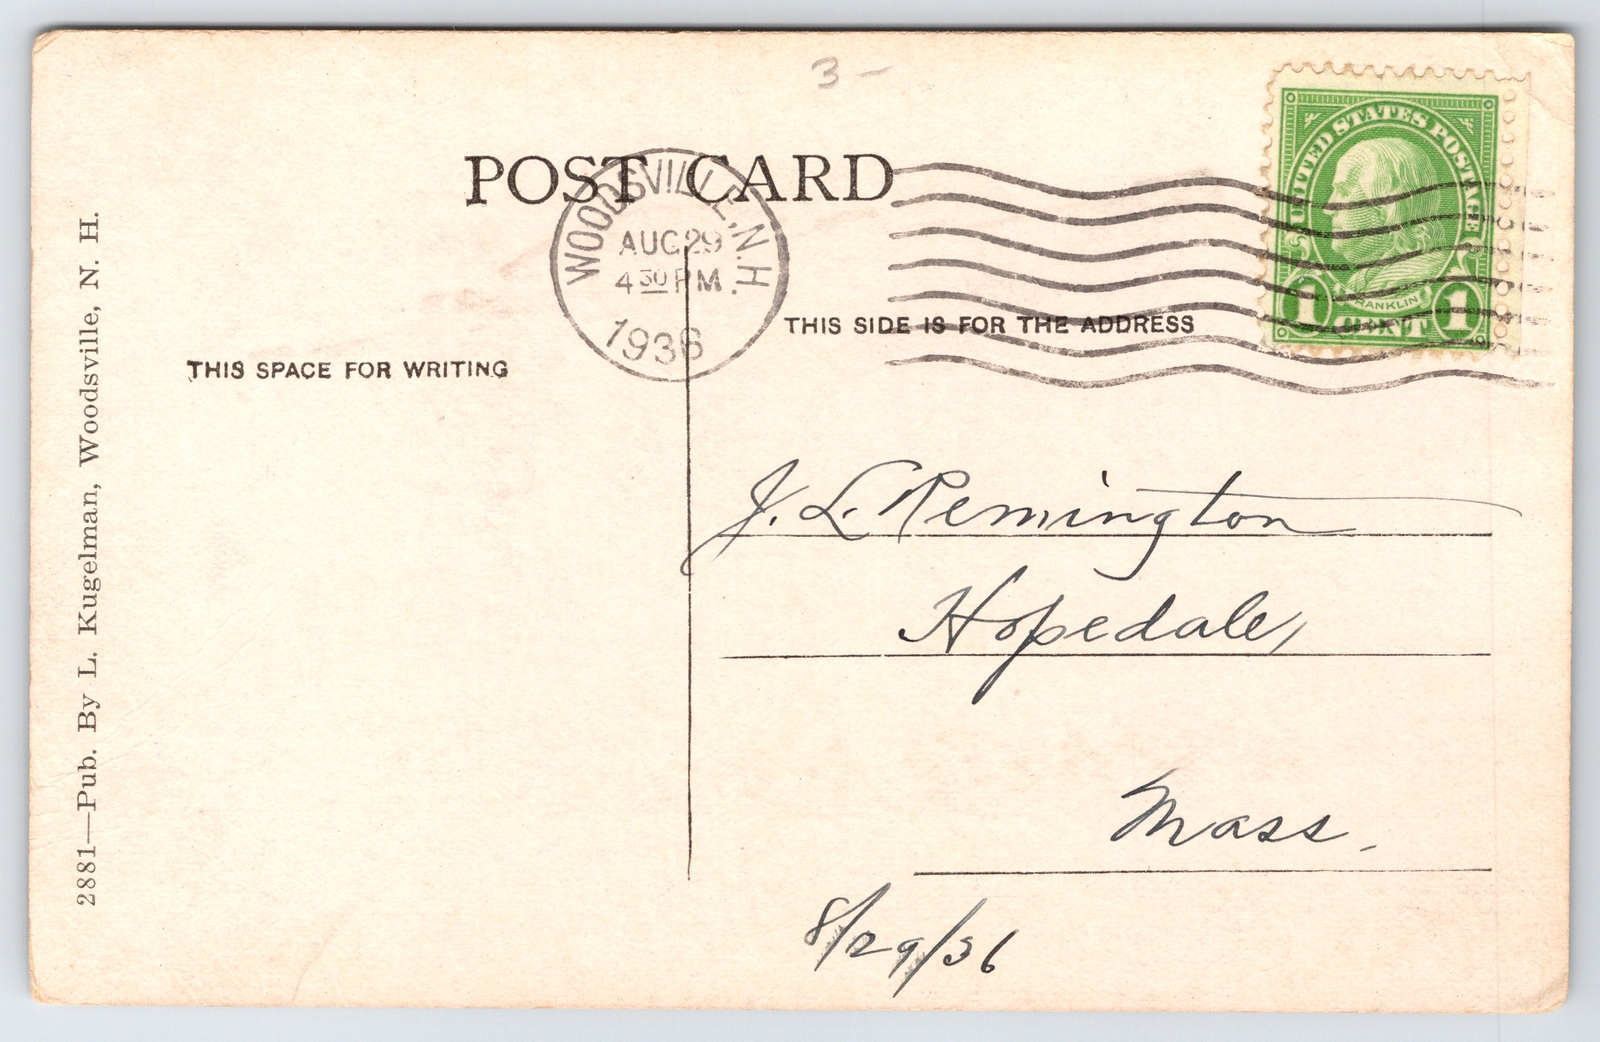 3 -
POST CARD
WOODSVILLE, N.H.
AUG 29
4 30 PM
1936
UNITED STATES POSTAGE
FRANKLIN
1 CENT 1
THIS SIDE IS FOR THE ADDRESS
THIS SPACE FOR WRITING
2881—Pub. By L. Kugelman, Woodsville, N. H.
J. L. Remington
Hopedale,
Mass.
8/29/36